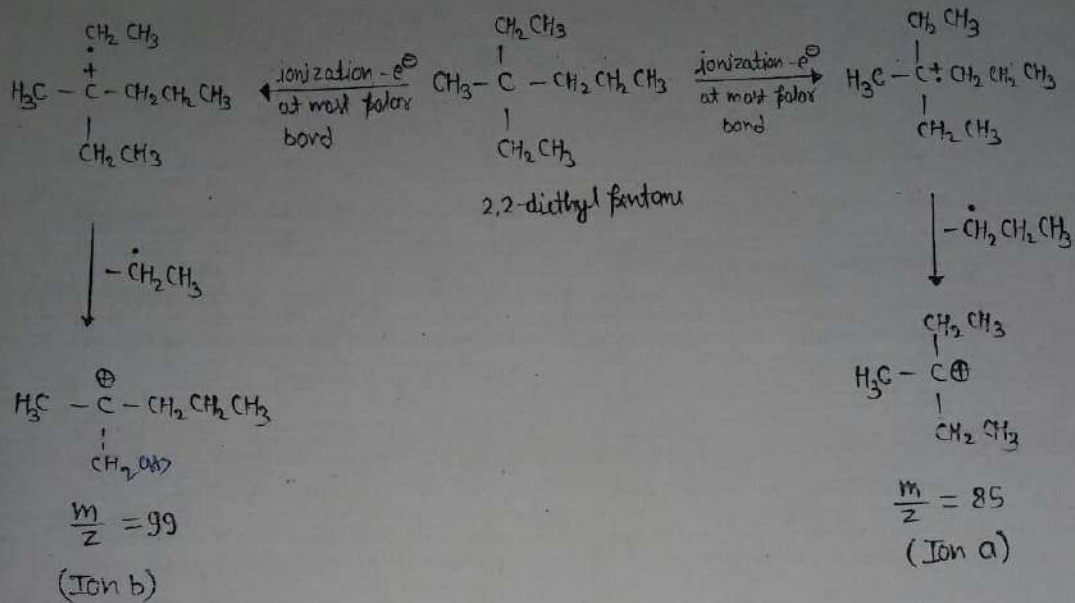 CH2 CH3
H3C - C - CH2CH2CH3
CH2CH3
ionization - e⊖
at most polar
bond
CH2CH3
CH3 - C - CH2CH2CH3
CH2CH3
2,2-diethyl pentane
ionization - e⊖
at most polar
bond
CH2 CH3
H3C - C + CH2 CH2 CH3
CH2 CH3
- CH2CH3
- CH2CH2CH3
⊕
H3C - C - CH2 CH2 CH3
CH2
m/z = 99
(Ion b)
CH2 CH3
H3C - C⊕
CH2 CH3
m/z = 85
(Ion a)